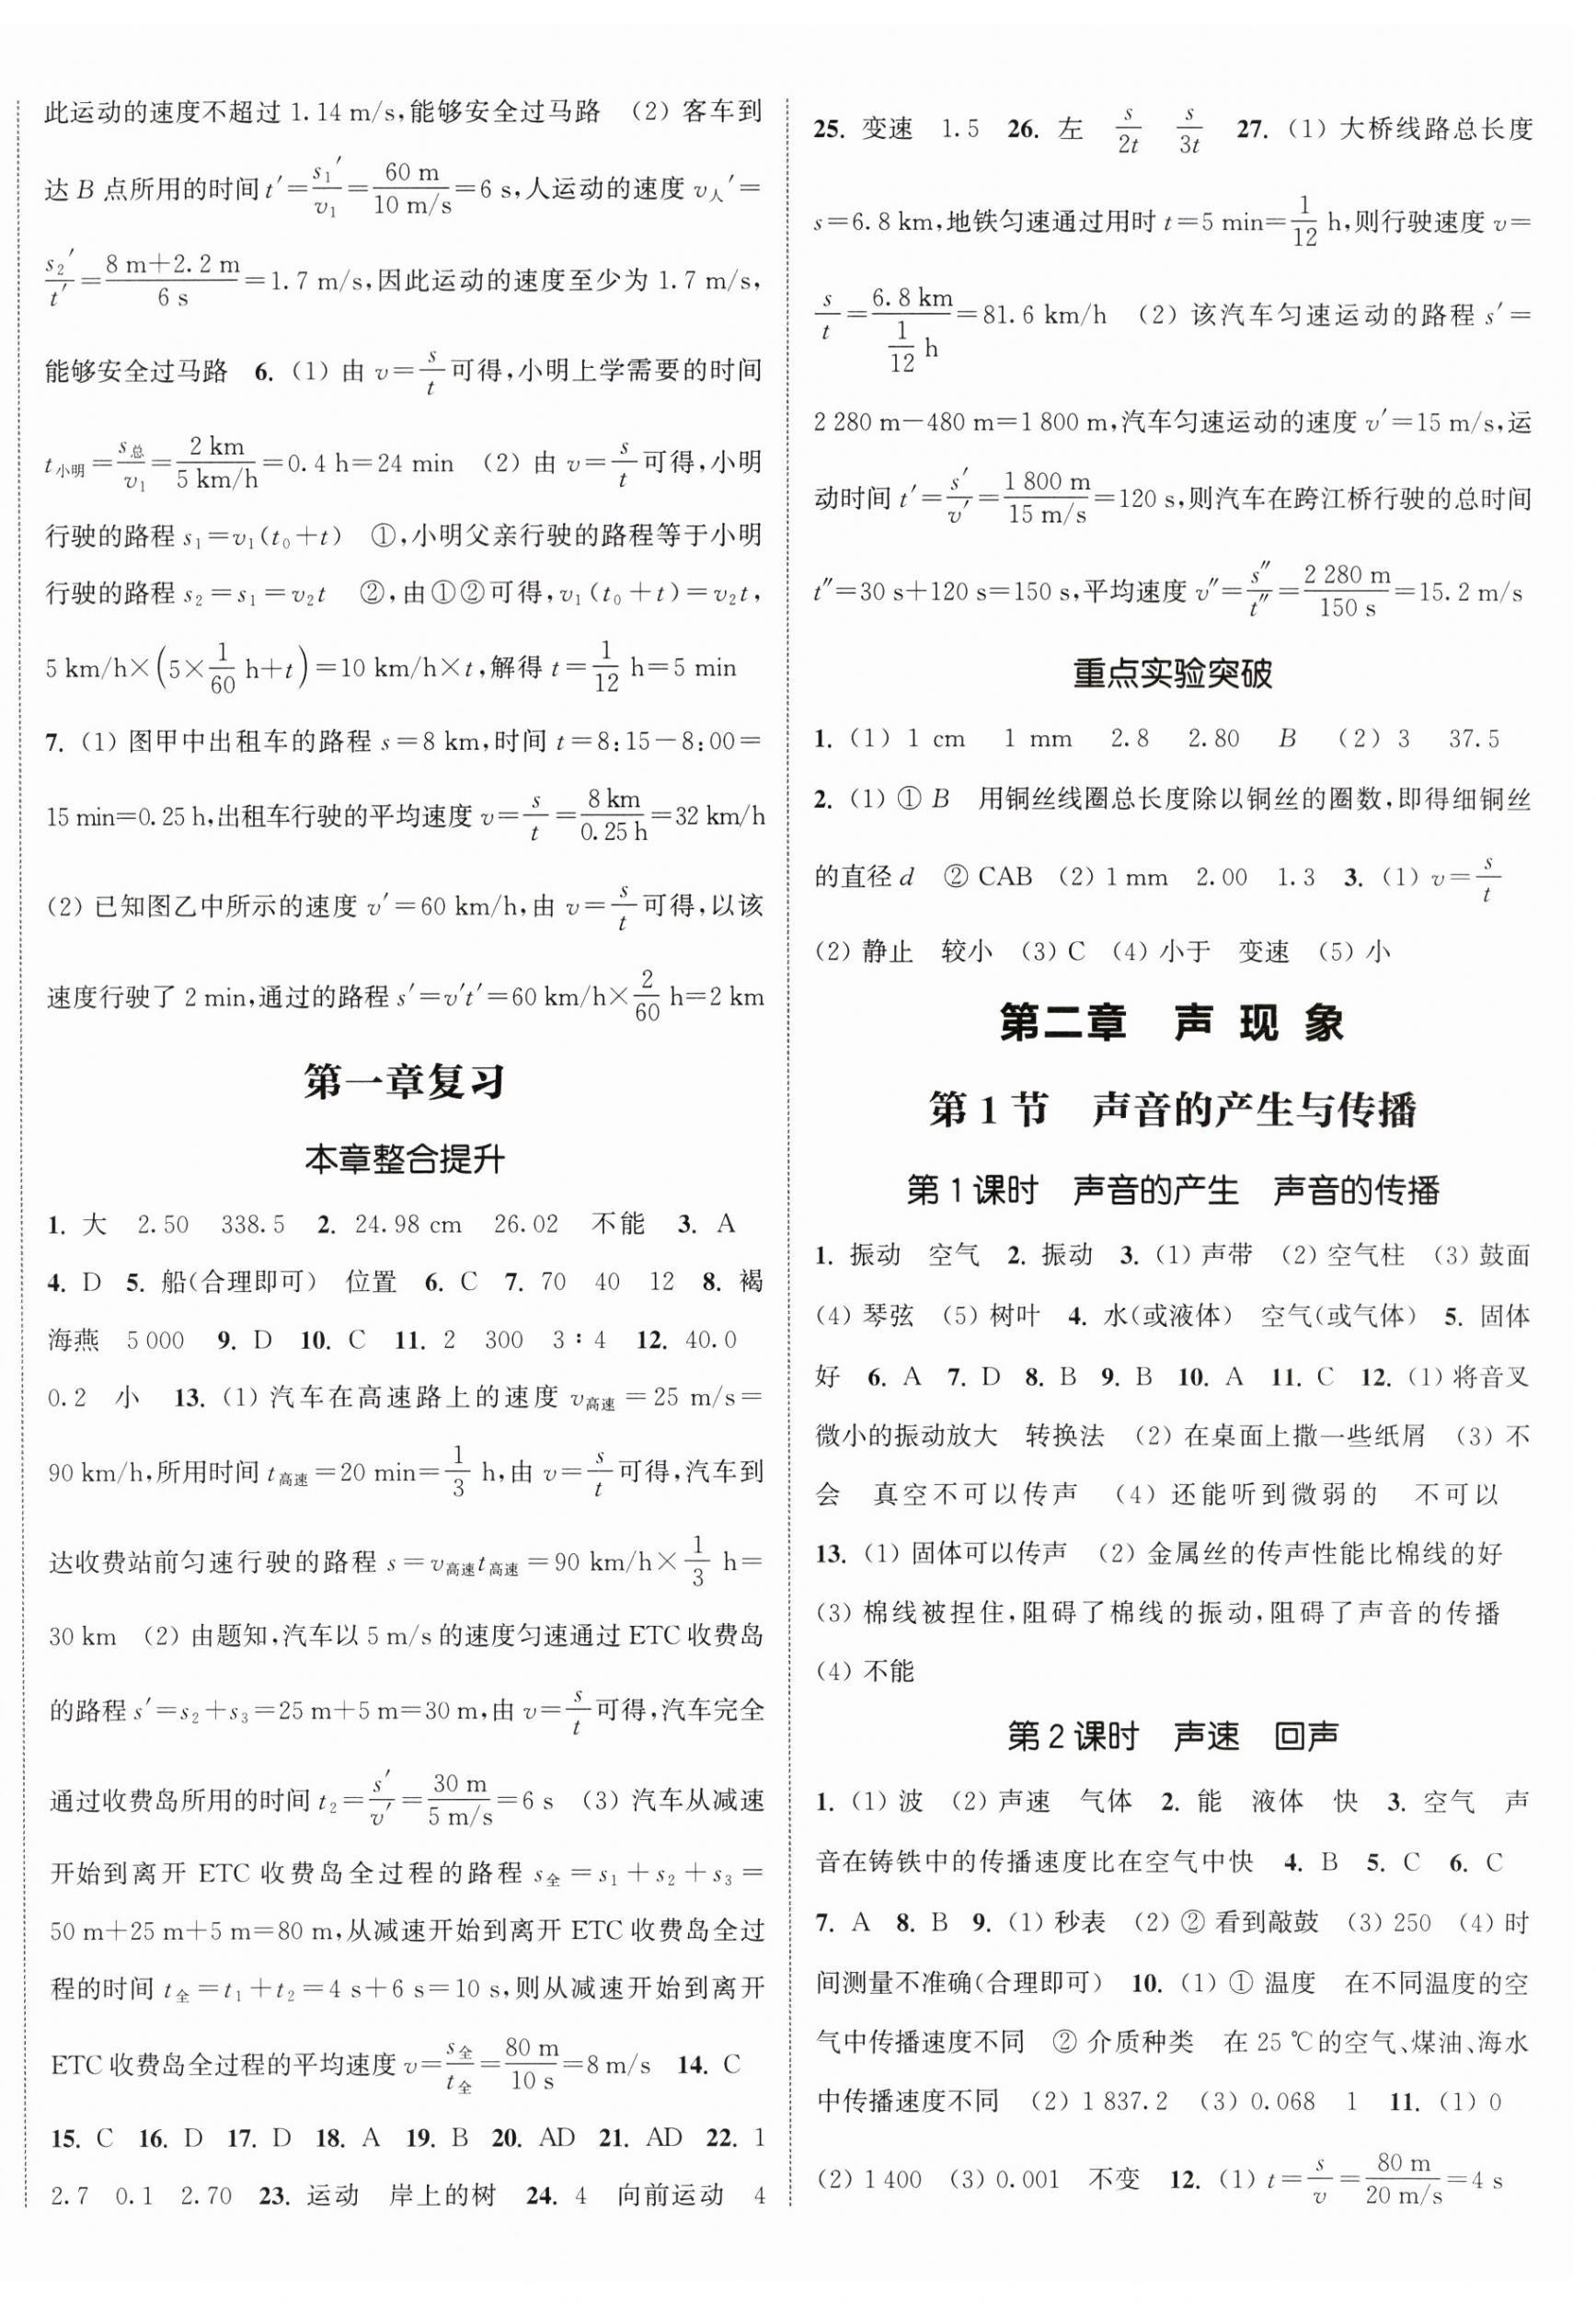 此运动的速度不超过 1.14 m/s,能够安全过马路 (2) 客车到
达 B 点所用的时间 t′=s₁′/v₁=60 m/10 m/s=6 s,人运动的速度 v人′=
s₂′/t′=8 m+2.2 m/6 s=1.7 m/s,因此运动的速度至少为 1.7 m/s,
能够安全过马路 6. (1) 由 v=s/t可得,小明上学需要的时间
t小明=s总/v₁=2 km/5 km/h=0.4 h=24 min (2) 由 v=s/t可得,小明
行驶的路程 s₁=v₁(t₀+t) ①,小明父亲行驶的路程等于小明
行驶的路程 s₂=s₁=v₂t ②,由①②可得,v₁(t₀+t)=v₂t,
5 km/h×(5×1/60 h+t)=10 km/h×t,解得 t=1/12 h=5 min
7. (1) 图甲中出租车的路程 s=8 km,时间 t=8:15-8:00=
15 min=0.25 h,出租车行驶的平均速度 v=s/t=8 km/0.25 h=32 km/h
(2) 已知图乙中所示的速度 v′=60 km/h,由 v=s/t可得,以该
速度行驶了 2 min,通过的路程 s′=v′t′=60 km/h×2/60 h=2 km
第一章复习
本章整合提升
1. 大 2.50 338.5 2. 24.98 cm 26.02 不能 3. A
4. D 5. 船(合理即可) 位置 6. C 7. 70 40 12 8. 褐
海燕 5 000 9. D 10. C 11. 2 300 3∶4 12. 40.0
0.2 小 13. (1) 汽车在高速路上的速度 v高速=25 m/s=
90 km/h,所用时间 t高速=20 min=1/3 h,由 v=s/t可得,汽车到
达收费站前匀速行驶的路程 s=v高速t高速=90 km/h×1/3 h=
30 km (2) 由题知,汽车以 5 m/s 的速度匀速通过 ETC 收费岛
的路程 s′=s₂+s₃=25 m+5 m=30 m,由 v=s/t可得,汽车完全
通过收费岛所用的时间 t₂=s′/v′=30 m/5 m/s=6 s (3) 汽车从减速
开始到离开 ETC 收费岛全过程的路程 s全=s₁+s₂+s₃=
50 m+25 m+5 m=80 m,从减速开始到离开 ETC 收费岛全过
程的时间 t全=t₁+t₂=4 s+6 s=10 s,则从减速开始到离开
ETC 收费岛全过程的平均速度 v=s全/t全=80 m/10 s=8 m/s 14. C
15. C 16. D 17. D 18. A 19. B 20. AD 21. AD 22. 1
2.7 0.1 2.70 23. 运动 岸上的树 24. 4 向前运动 4
25. 变速 1.5 26. 左 s/2t s/3t 27. (1) 大桥线路总长度
s=6.8 km,地铁匀速通过用时 t=5 min=1/12 h,则行驶速度 v=
s/t=6.8 km/(1/12 h)=81.6 km/h (2) 该汽车匀速运动的路程 s′=
2 280 m-480 m=1 800 m,汽车匀速运动的速度 v′=15 m/s,运
动时间 t′=s′/v′=1 800 m/15 m/s=120 s,则汽车在跨江桥行驶的总时间
t″=30 s+120 s=150 s,平均速度 v″=s″/t″=2 280 m/150 s=15.2 m/s
重点实验突破
1. (1) 1 cm 1 mm 2.8 2.80 B (2) 3 37.5
2. (1) ① B 用铜丝线圈总长度除以铜丝的圈数,即得细铜丝
的直径 d ② CAB (2) 1 mm 2.00 1.3 3. (1) v=s/t
(2) 静止 较小 (3) C (4) 小于 变速 (5) 小
第二章 声 现 象
第 1 节 声音的产生与传播
第 1 课时 声音的产生 声音的传播
1. 振动 空气 2. 振动 3. (1) 声带 (2) 空气柱 (3) 鼓面
(4) 琴弦 (5) 树叶 4. 水(或液体) 空气(或气体) 5. 固体
好 6. A 7. D 8. B 9. B 10. A 11. C 12. (1) 将音叉
微小的振动放大 转换法 (2) 在桌面上撒一些纸屑 (3) 不
会 真空不可以传声 (4) 还能听到微弱的 不可以
13. (1) 固体可以传声 (2) 金属丝的传声性能比棉线的好
(3) 棉线被捏住,阻碍了棉线的振动,阻碍了声音的传播
(4) 不能
第 2 课时 声速 回声
1. (1) 波 (2) 声速 气体 2. 能 液体 快 3. 空气 声
音在铸铁中的传播速度比在空气中快 4. B 5. C 6. C
7. A 8. B 9. (1) 秒表 (2) ② 看到敲鼓 (3) 250 (4) 时
间测量不准确(合理即可) 10. (1) ① 温度 在不同温度的空
气中传播速度不同 ② 介质种类 在 25 ℃的空气、煤油、海水
中传播速度不同 (2) 1 837.2 (3) 0.068 1 11. (1) 0
(2) 1 400 (3) 0.001 不变 12. (1) t=s/v=80 m/20 m/s=4 s